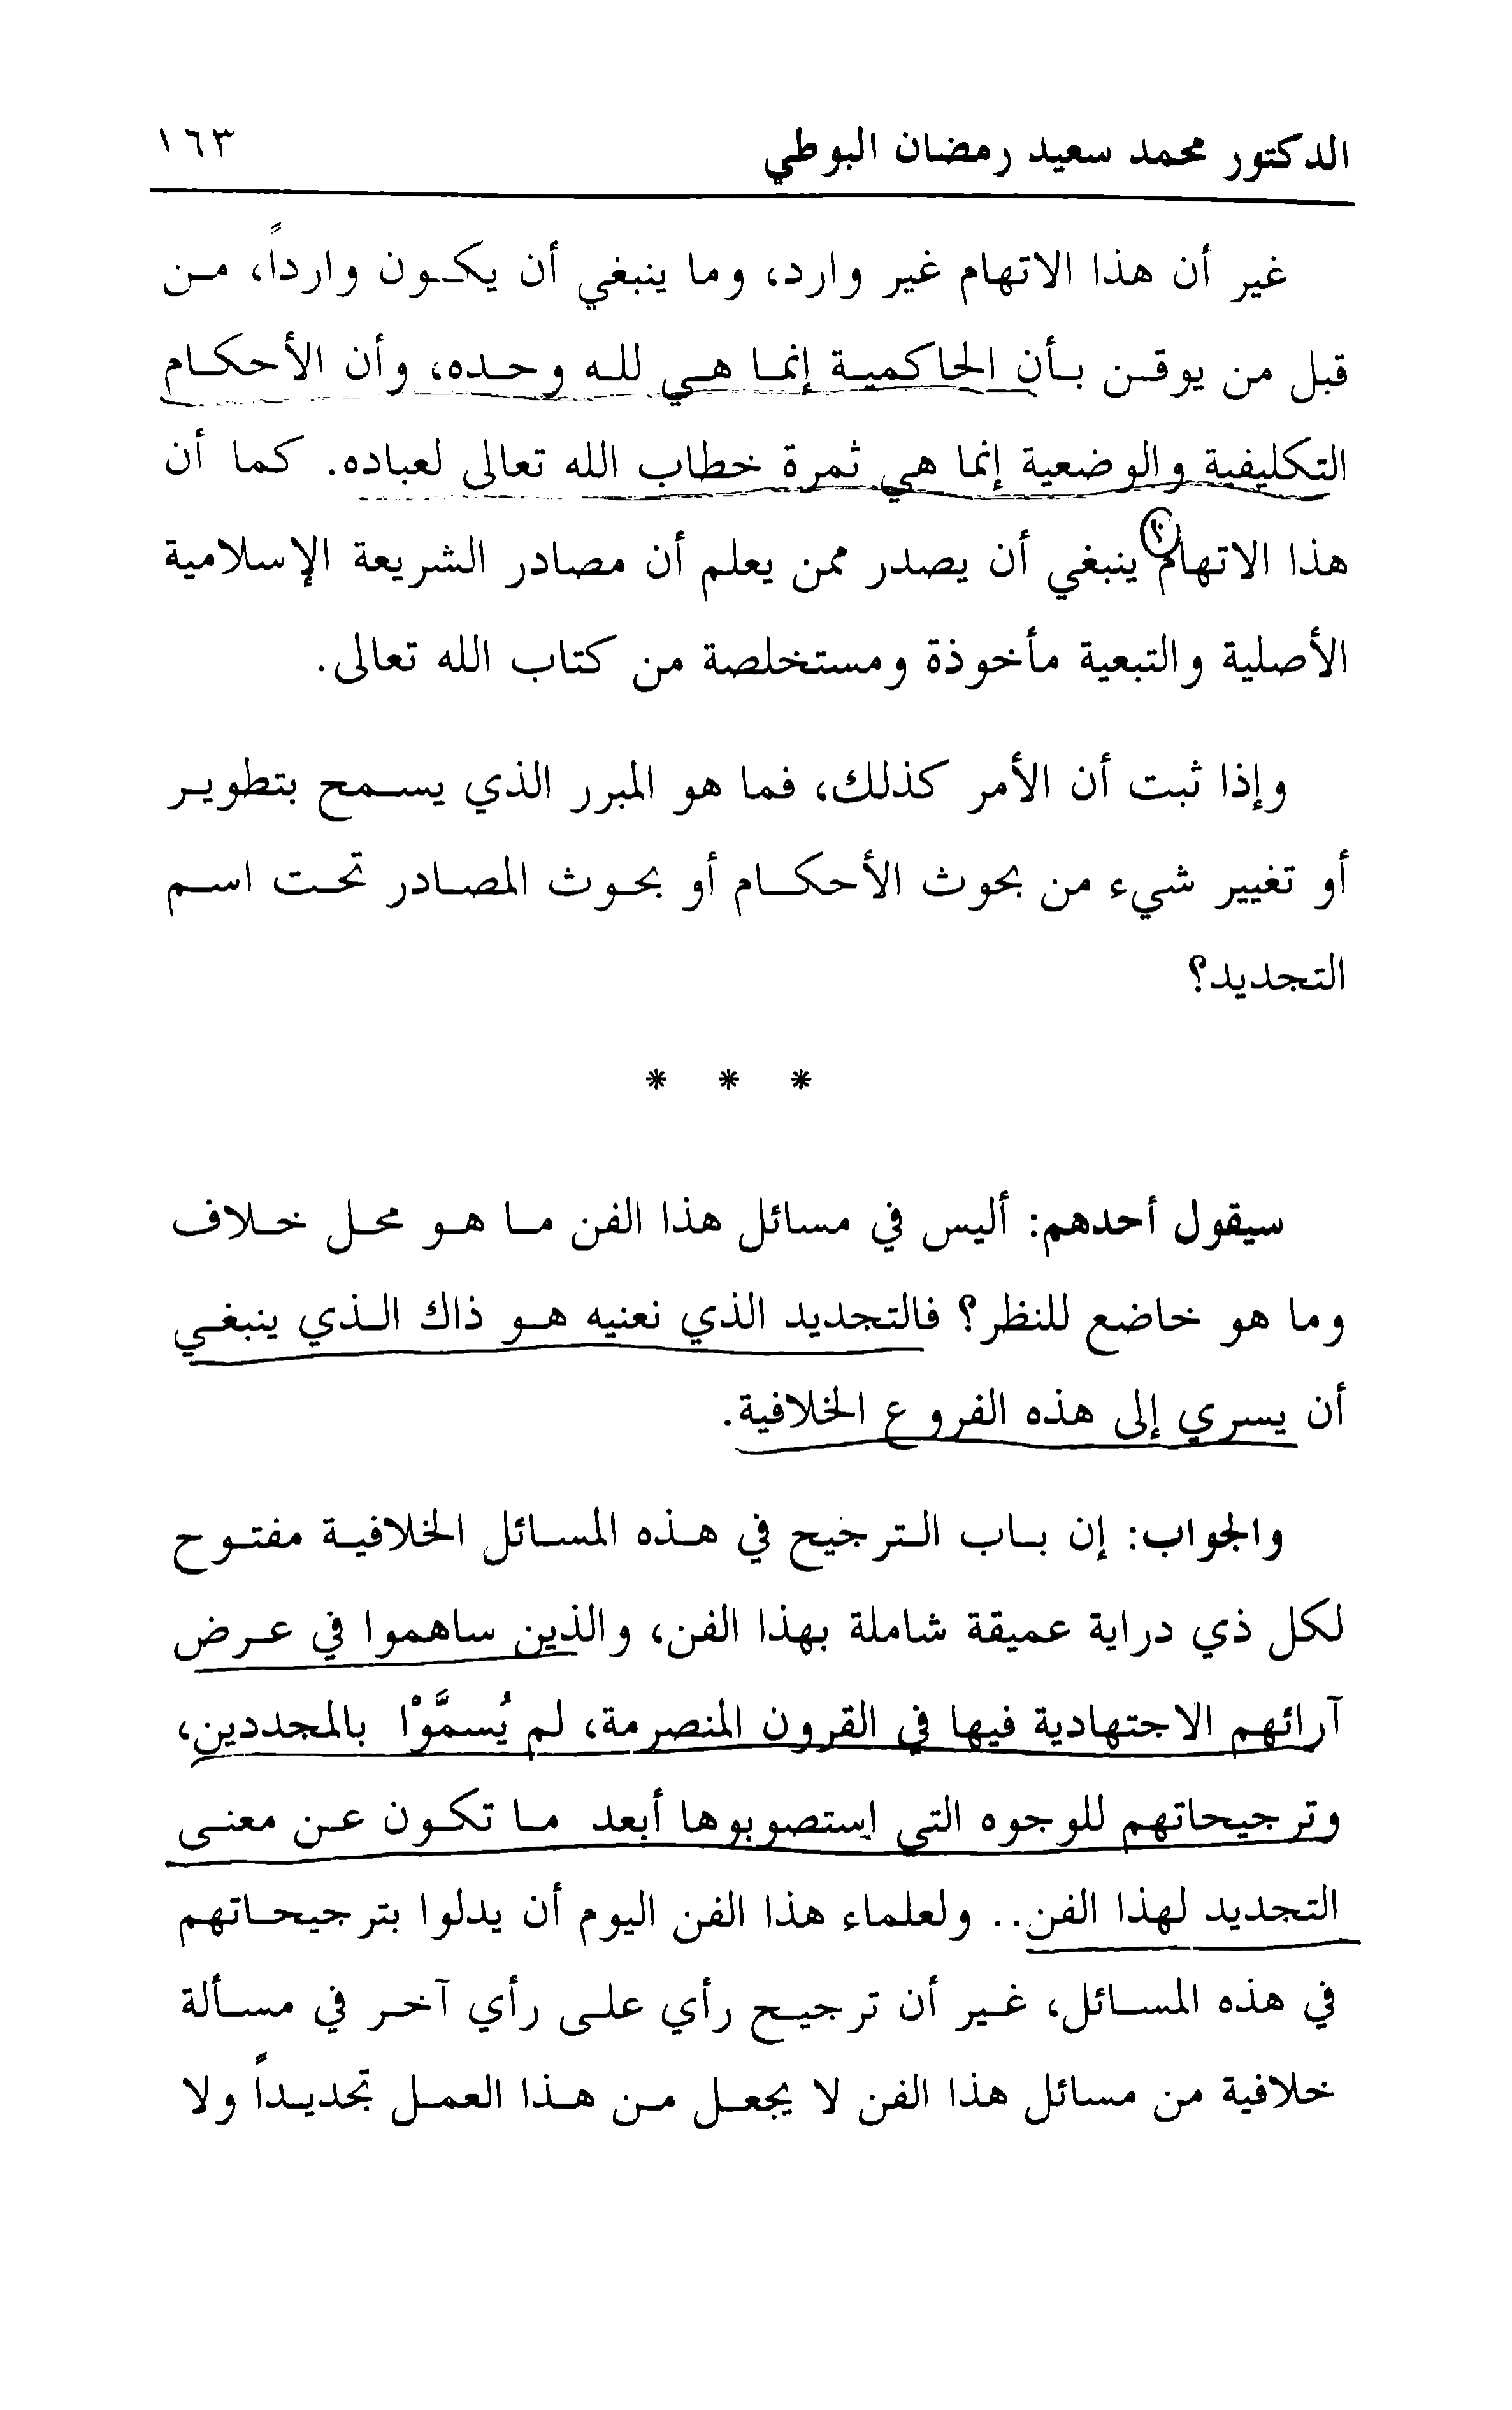 الدكتور محمد سعيد رمضان البوطي ١٦٣
غير أن هذا الاتهام غير وارد، وما ينبغي أن يكون وارداً، من
قبل من يوقن بأن الحاكمية إنما هي لله وحده، وأن الأحكام
التكليفية والوضعية إنما هي ثمرة خطاب الله تعالى لعباده. كما أن
هذا الاتهام ينبغي أن يصدر ممن يعلم أن مصادر الشريعة الإسلامية
الأصلية والتبعية مأخوذة ومستخلصة من كتاب الله تعالى.
وإذا ثبت أن الأمر كذلك، فما هو المبرر الذي يسمح بتطوير
أو تغيير شيء من بحوث الأحكام أو بحوث المصادر تحت اسم
التجديد؟
* * *
سيقول أحدهم: أليس في مسائل هذا الفن ما هو محل خلاف
وما هو خاضع للنظر؟ فالتجديد الذي نعنيه هو ذاك الذي ينبغي
أن يسري إلى هذه الفروع الخلافية.
والجواب: إن باب الترجيح في هذه المسائل الخلافية مفتوح
لكل ذي دراية عميقة شاملة بهذا الفن، والذين ساهموا في عرض
آرائهم الاجتهادية فيها في القرون المنصرمة، لم يُسمَّوْا بالمجددين،
وترجيحاتهم للوجوه التي استصوبوها أبعد ما تكون عن معنى
التجديد لهذا الفن.. ولعلماء هذا الفن اليوم أن يدلوا بترجيحاتهم
في هذه المسائل، غير أن ترجيح رأي على رأي آخر في مسألة
خلافية من مسائل هذا الفن لا يجعل من هذا العمل تجديداً ولا